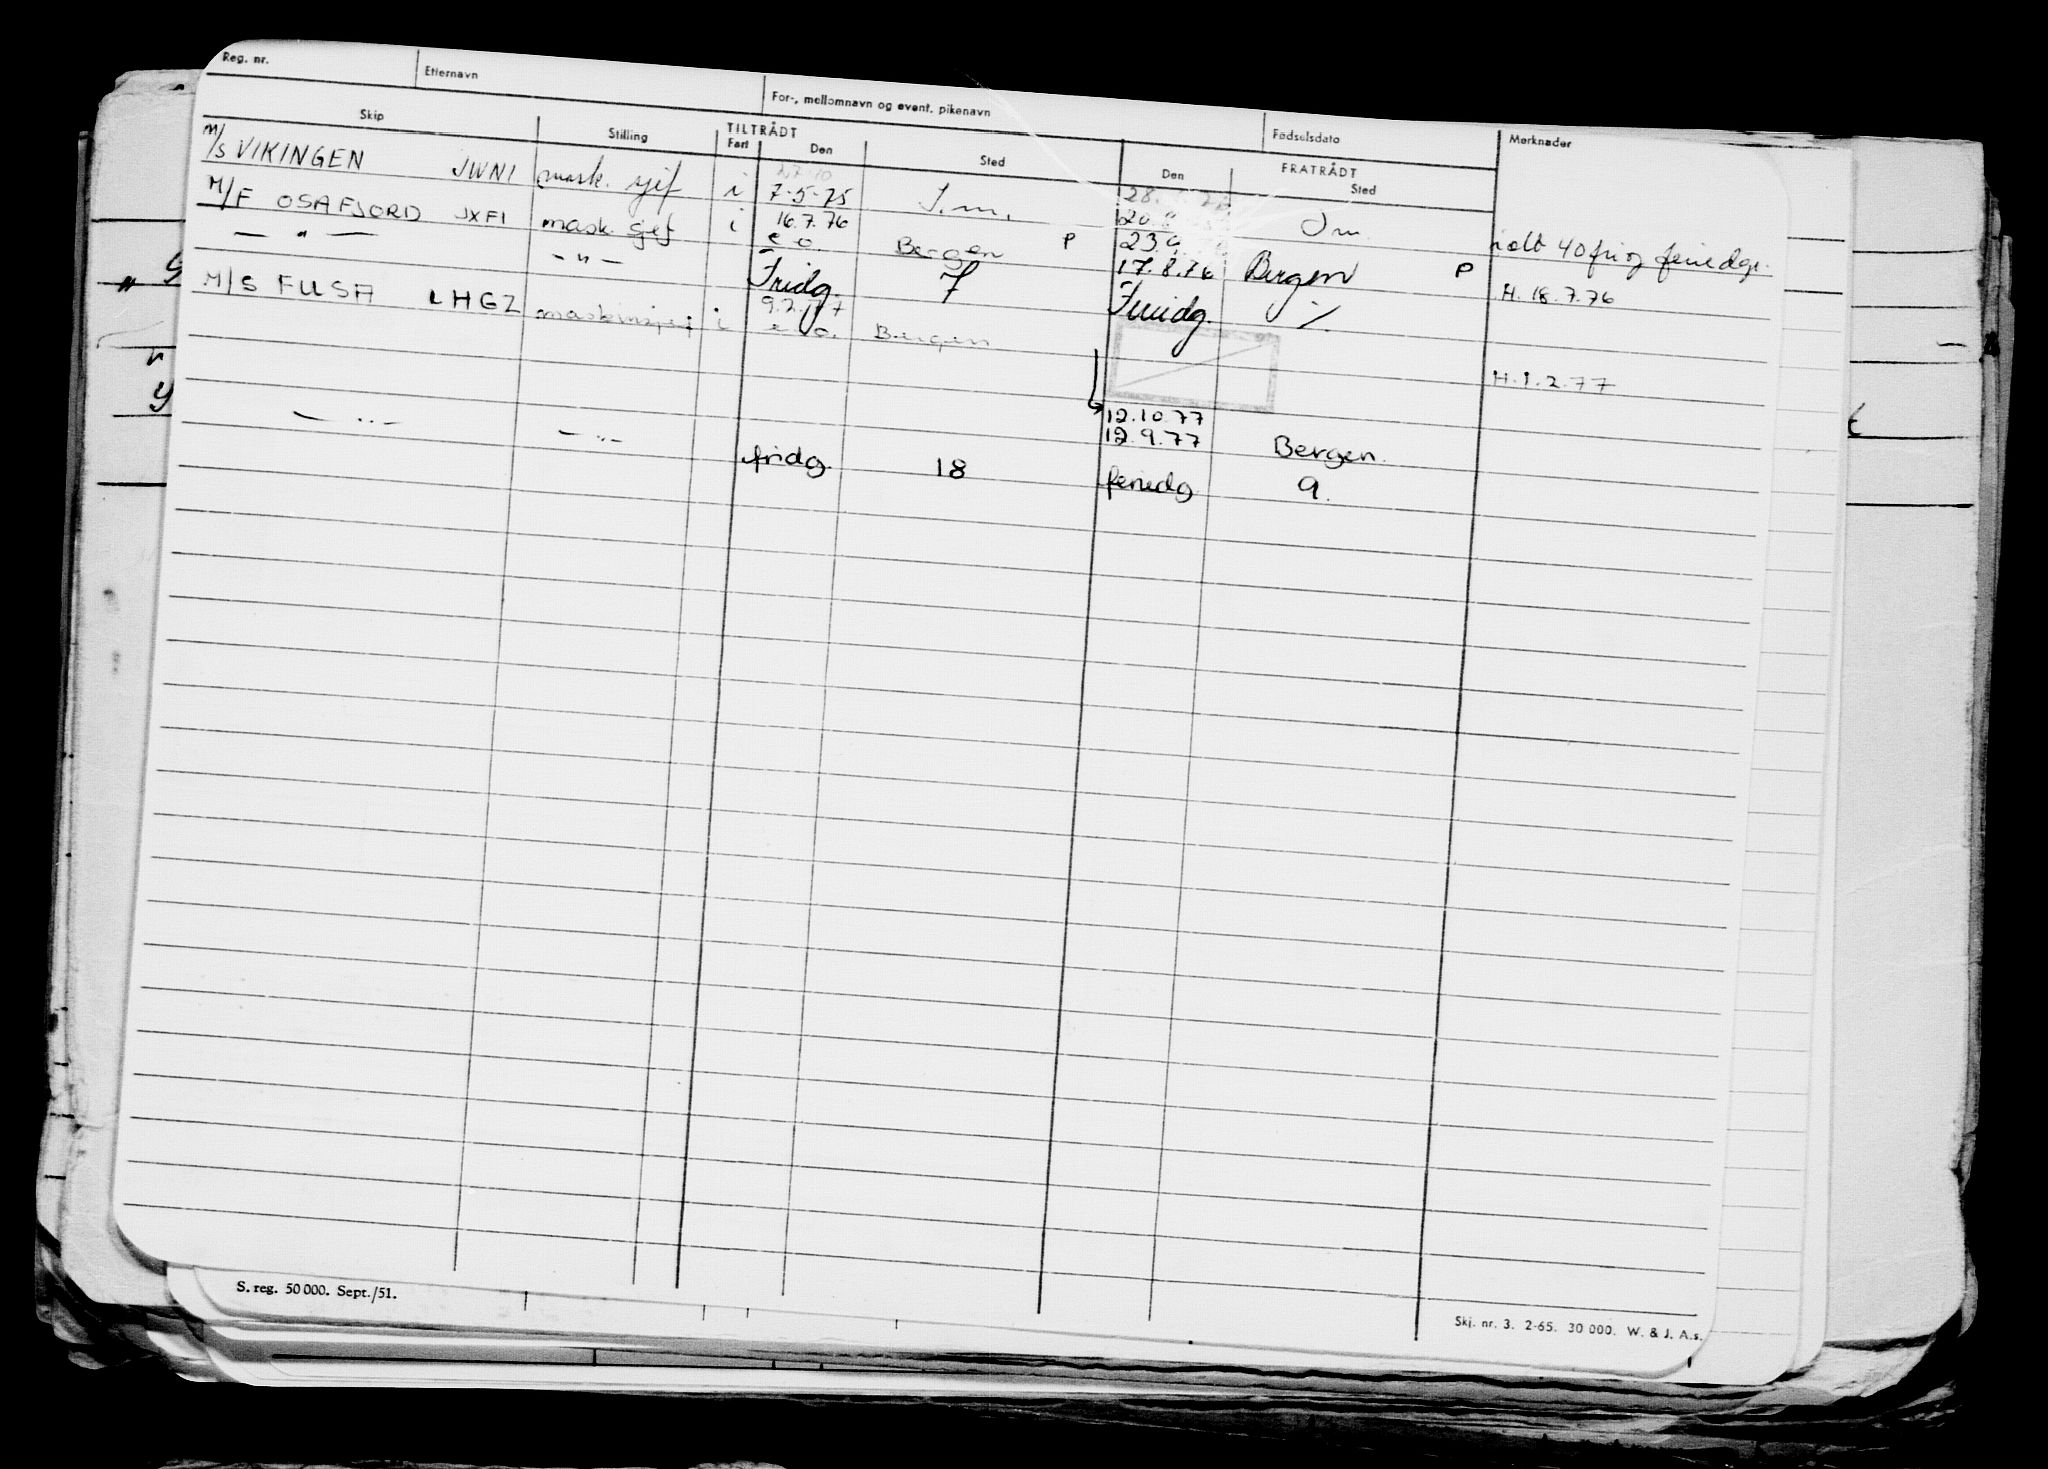 Reg. nr. Etternavn For-, mellomnavn og event. pikenavn Fødselsdato Merknader
Skip Stilling TILTRÅDT FRATRÅDT
Fart Den Sted Den Sted
M/S VIKINGEN JWNI mask. sjef i 7-5-75 J.m.
M/F OSAFJORD JXFI mask. sjef i 16.7.76
— " — - " - e.o. Bergen P 17.8.76 Bergen P ialt 40 fri og feriedgr.
Fridg. 7 Feriedg. H. 18.7.76
M/S FUSA LHGZ maskinsjef i 9.2.77
e.o. Bergen
H. 1.2.77
12.10.77
— " — - " - 12.9.77 Bergen.
fridg. 18 feriedg 9.
S. reg. 50 000. Sept./51.
Skj. nr. 3. 2-65. 30 000. W. & J. A.s.